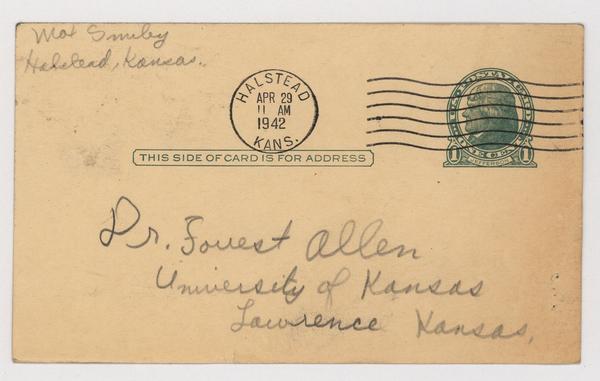 Max Smiley
Halstead, Kansas.
HALSTEAD
APR 29
11 AM
1942
KANS.
THIS SIDE OF CARD IS FOR ADDRESS
1 1
JEFFERSON
Dr. Forrest Allen
University of Kansas
Lawrence Kansas.